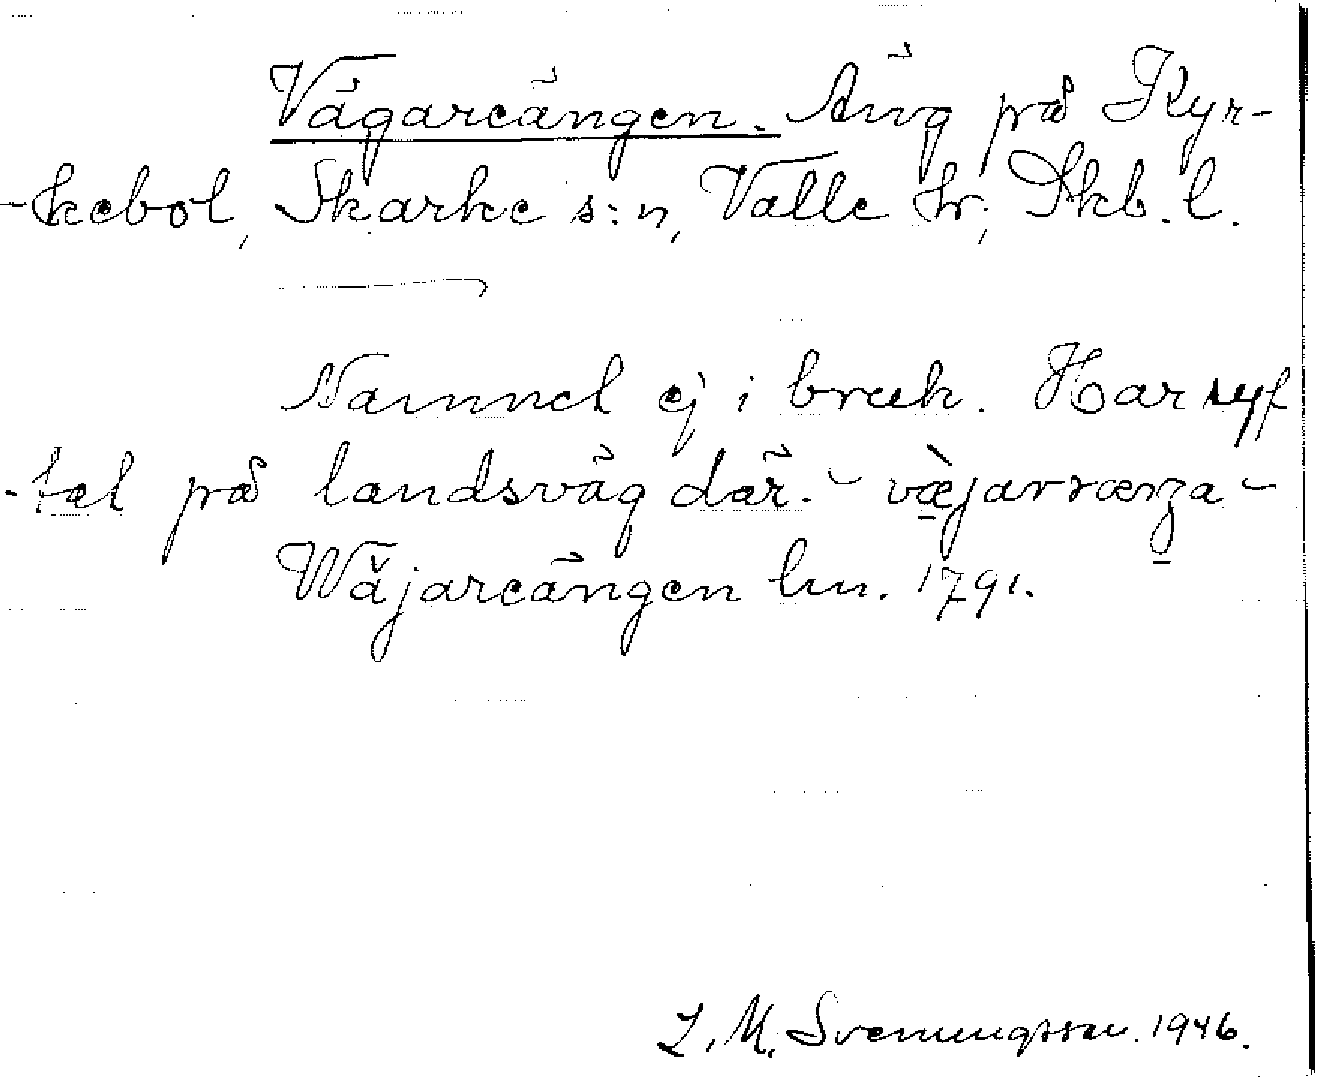 Vägareängen. Äng på Kyr-
-kebol, Skarke s:n, Valle hr, Skb. l.
Namnet ej i bruk. Har syf
-tat på landsväg där. - væjarræŋa -
Wäjareängen lm. 1791.
L. M. Svenungsson. 1946.